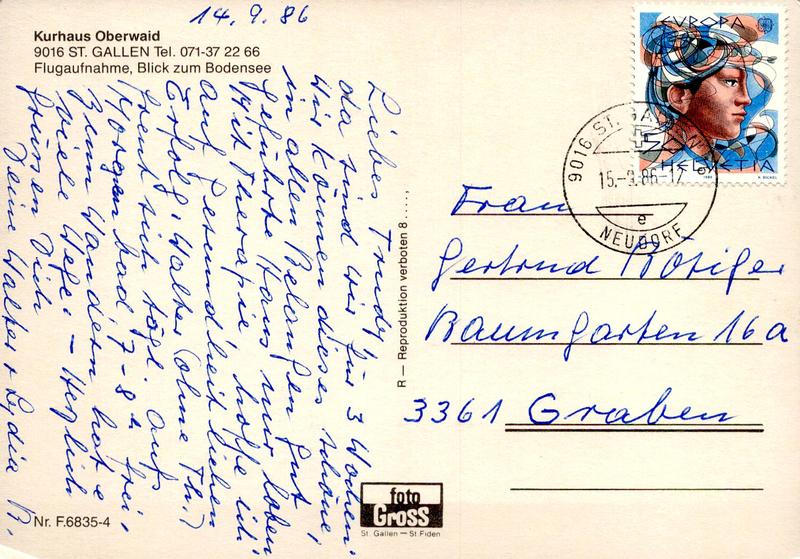 14.9.86
Kurhaus Oberwaid
9016 ST. GALLEN Tel. 071-37 22 66
Flugaufnahme, Blick zum Bodensee
Liebes Trudy!
da sind wir für 3 Wochen.
Wir können dieses schöne,
in allen Belangen gut
geführte Haus nur loben
Mit Therapie, hoffe ich
auf Gesundheit lieben
Erfolg. Walter (ohne Th.)
freut sich tägl. aufs
Morgenbad, 7-8h frei,
zum Wandern hat's
viele Wege. – Herzlich
grüssen Dich
Deine Walter + Lydia R.
R – Reproduktion verboten 8.....,
EUROPA
HELVETIA
9016 ST. GALLEN
15.-9.86-17
e
NEUDORF
Frau
Gertrud Bösiger
Baumgarten 16a
3361 Graben
Nr. F.6835-4
foto
Gross
St. Gallen – St. Fiden